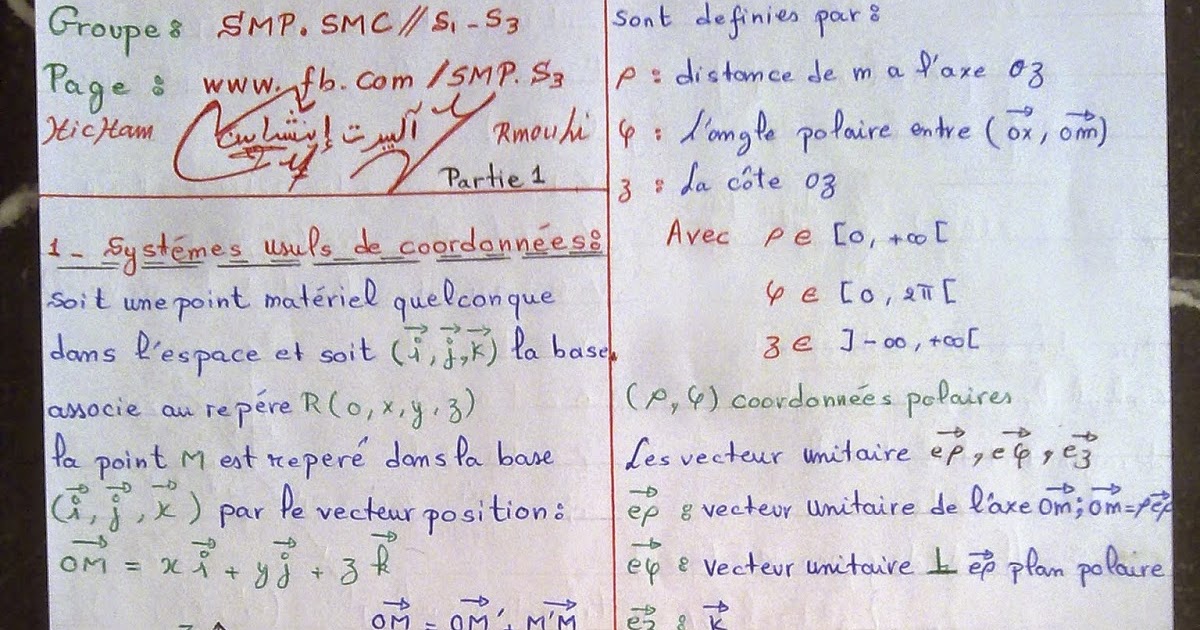 Groupe : SMP.SMC // S1 - S3
Page : www.fb.com /SMP.S3
Hicham آلبرت إينشتاين Rmouhi
Partie 1
1 - Systémes usuls de coordonnées :
soit une point matériel quelconque
dans l'espace et soit (i⃗, j⃗, k⃗) la base.
associe au repére R(o, x, y, z)
la point M est reperé dans la base
(i⃗, j⃗, k⃗) par le vecteur position :
OM⃗ = x i⃗ + y j⃗ + z k⃗
OM⃗ = OM⃗' + M'M⃗
sont definies par :
ρ : distance de m a l'axe oz
φ : l'angle polaire entre (ox⃗, om⃗)
z : La côte oz
Avec ρ ∈ [0, +∞[
φ ∈ [0, 2π[
z ∈ ]-∞, +∞[
(ρ, φ) coordonnées polaires
Les vecteur unitaire eρ⃗, eφ⃗, ez⃗
eρ⃗ : vecteur unitaire de l'axe om⃗; om⃗=ρeρ⃗
eφ⃗ : vecteur unitaire ⊥ eρ⃗ plan polaire
ez⃗ : k⃗